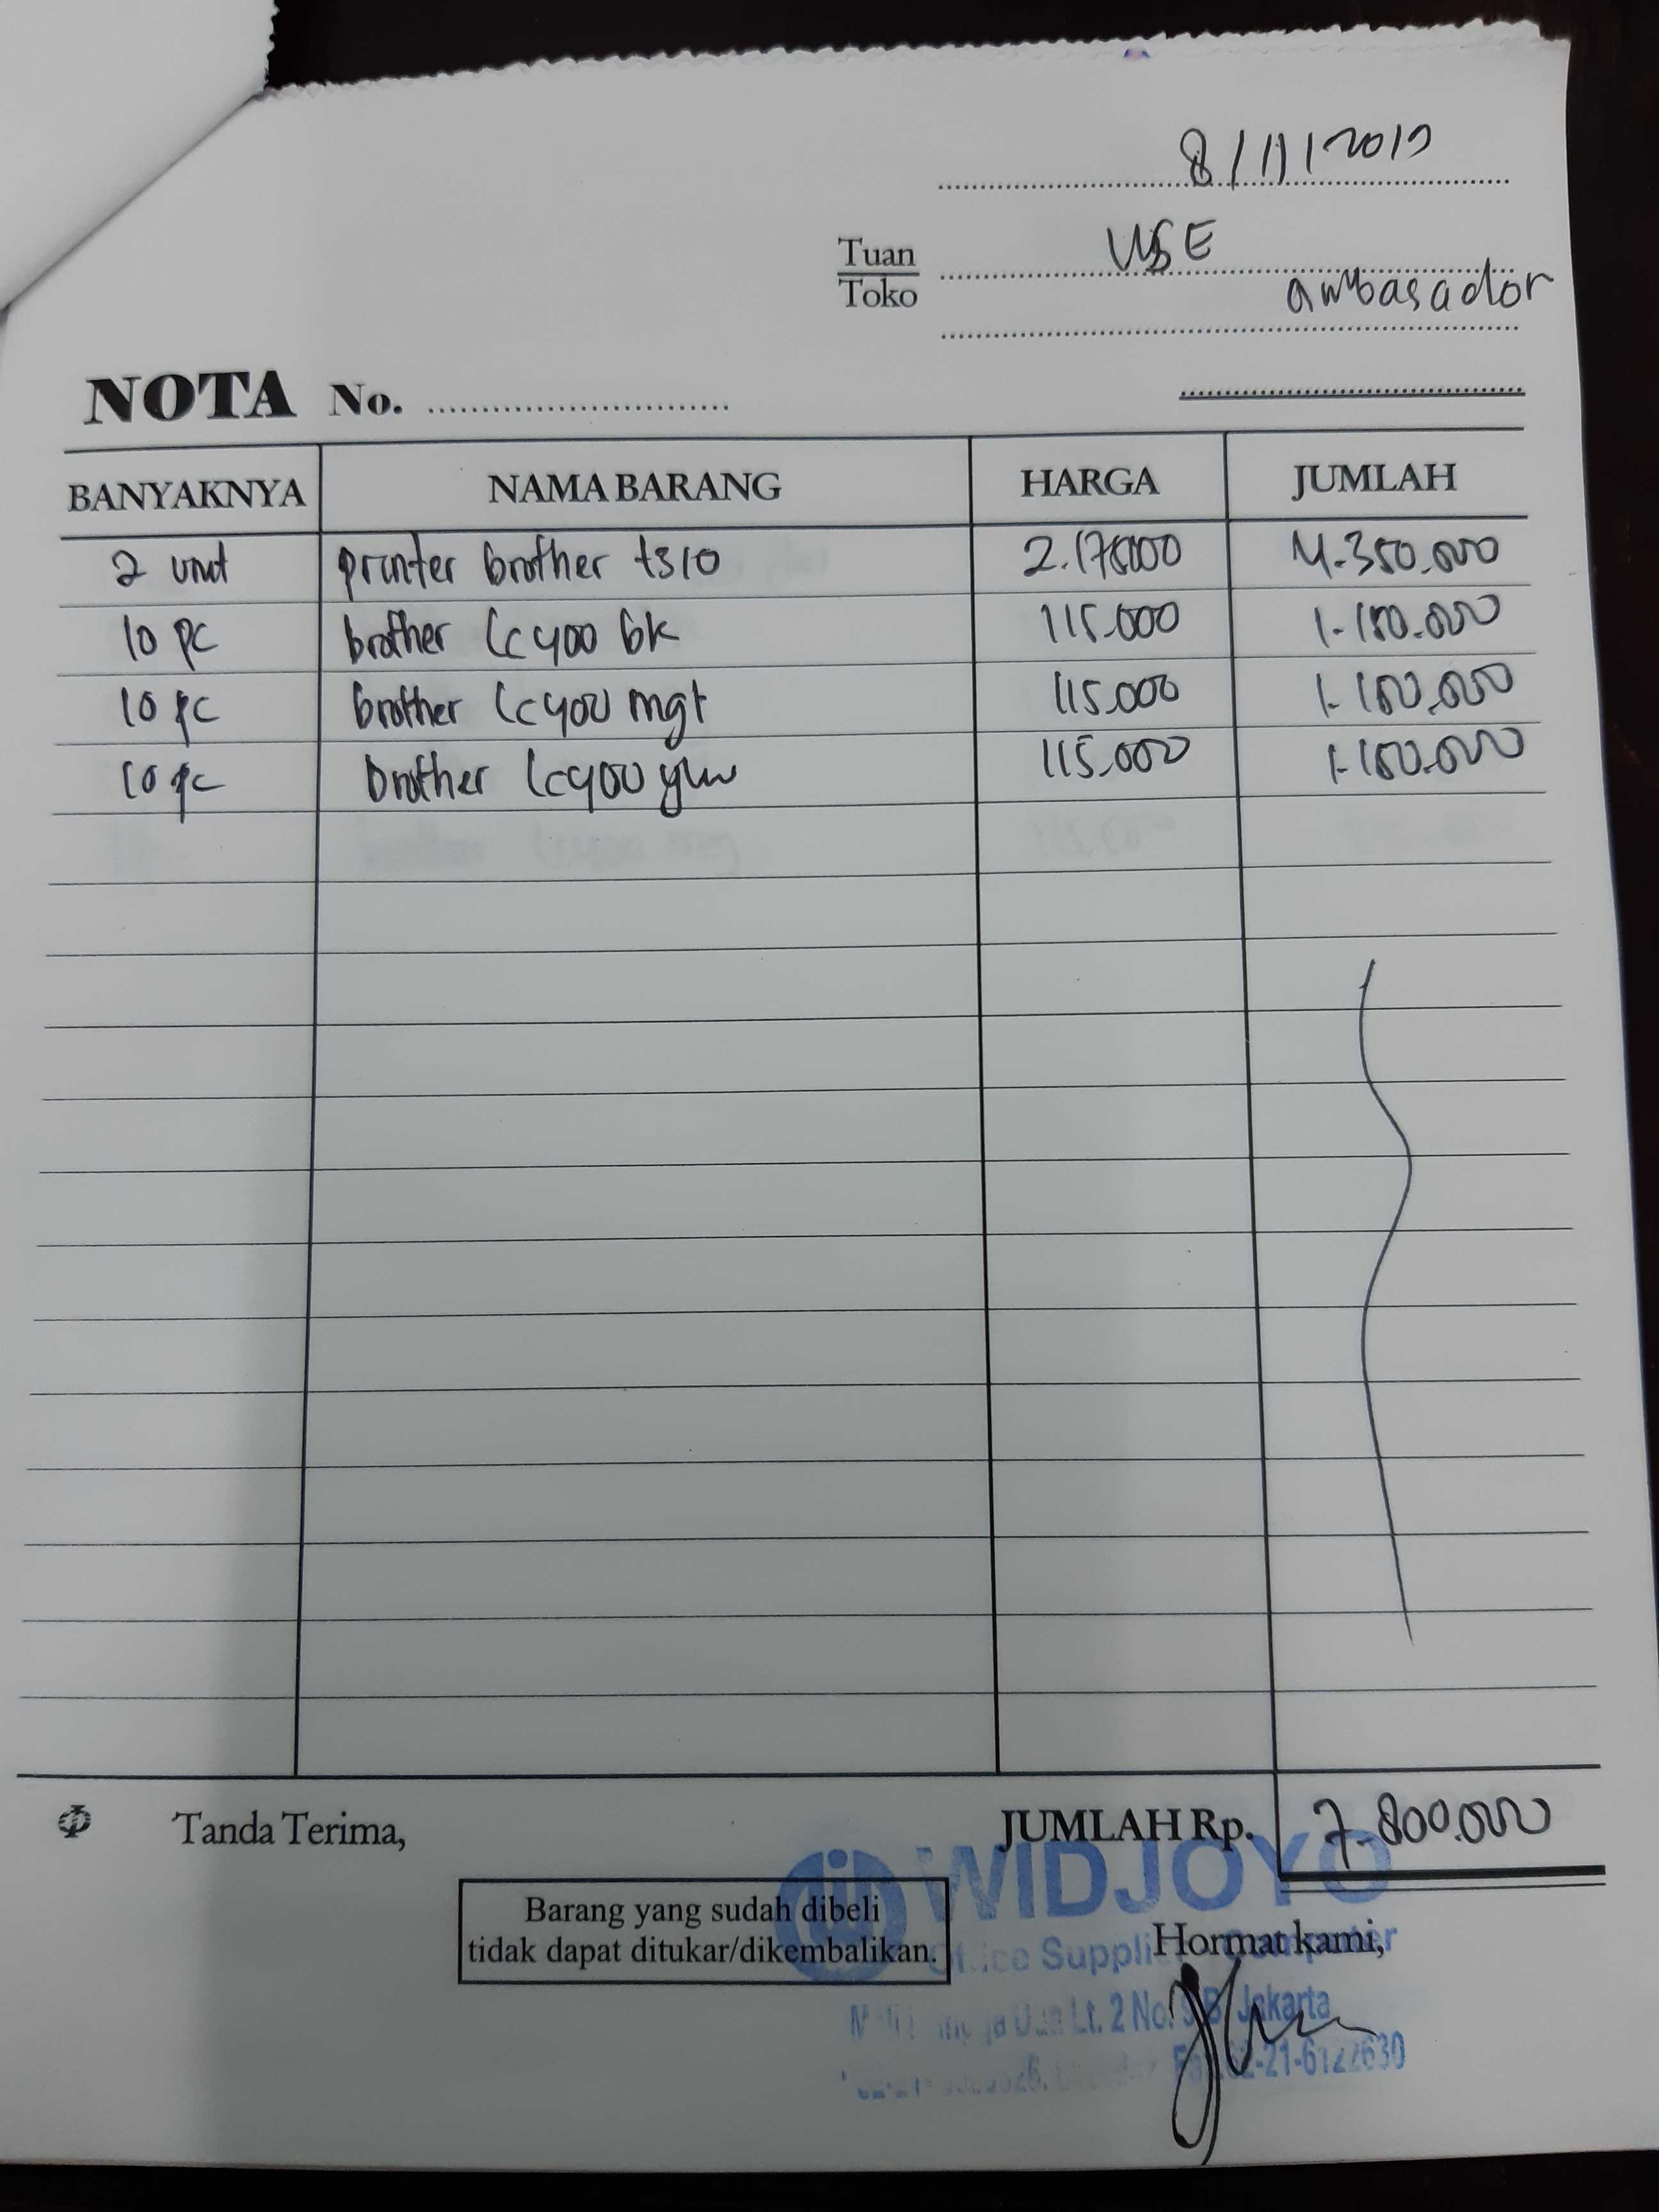 8/11/2019
Tuan
Toko
USE
ambasador
NOTA No.
BANYAKNYA NAMA BARANG HARGA JUMLAH
2 unit printer brother t310 2.175.000 4.350.000
10 pc brother lc400 bk 115.000 1.150.000
10 pc brother lc400 mgt 115.000 1.150.000
10 pc brother lc400 ylw 115.000 1.150.000
Tanda Terima, JUMLAH Rp. 7.800.000
WIDJOYO
Barang yang sudah dibeli
tidak dapat ditukar/dikembalikan.
Hormat kami,
Office Supplies
Lt. 2 No. Jakarta
-21-6122630